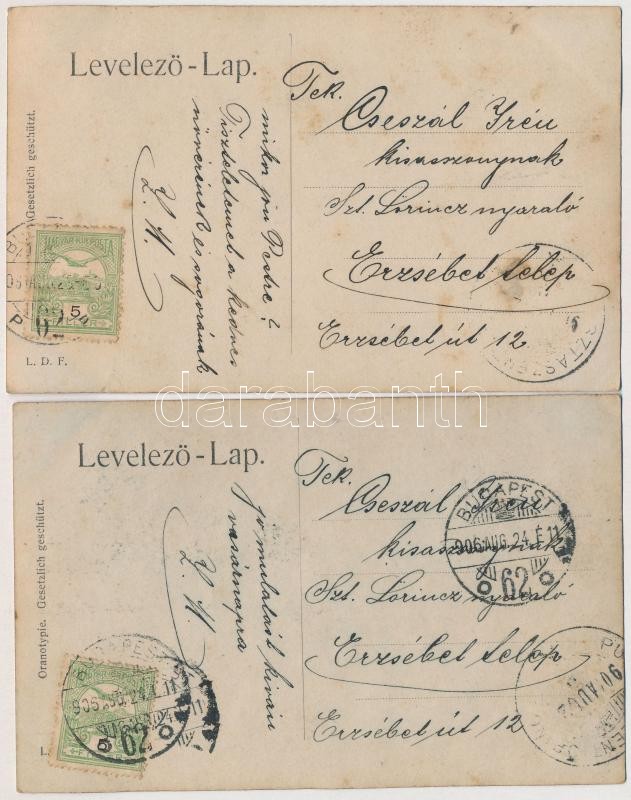 Levelezö-Lap.
Gesetzlich geschützt.
L. D. F.
Tek.
Cseszál Irén
kisasszonynak
Szt. Lorincz nyaraló
Erzsébet telep
Erzsébet út 12
mikor jön Pestre?
Tiszteletemet a kedves
növérének és sogorának
L. H.
MAGYAR KIR. POSTA
5
darabanth
Levelezö-Lap.
Oranotypie. Gesetzlich geschützt.
Tek.
Cseszál
kisasszonynak
Szt. Lorincz nyaraló
Erzsébet telep
Erzsébet út 12
jó mulatást kiván
vasárnapra
L. H.
BUDAPEST
906 AUG. 24. É 11
62
BUDAPEST
906 AUG. 24. É 11
62